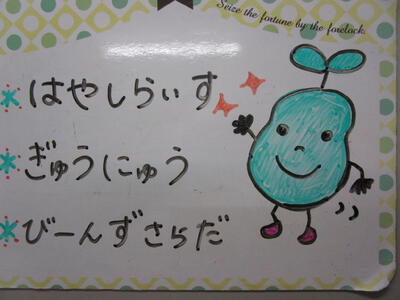 Seize the fortune by the forelock.
はやしらいす
ぎゅうにゅう
びーんずさらだ